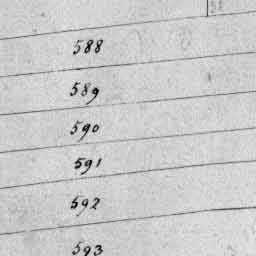 588
589
590
591
592
593